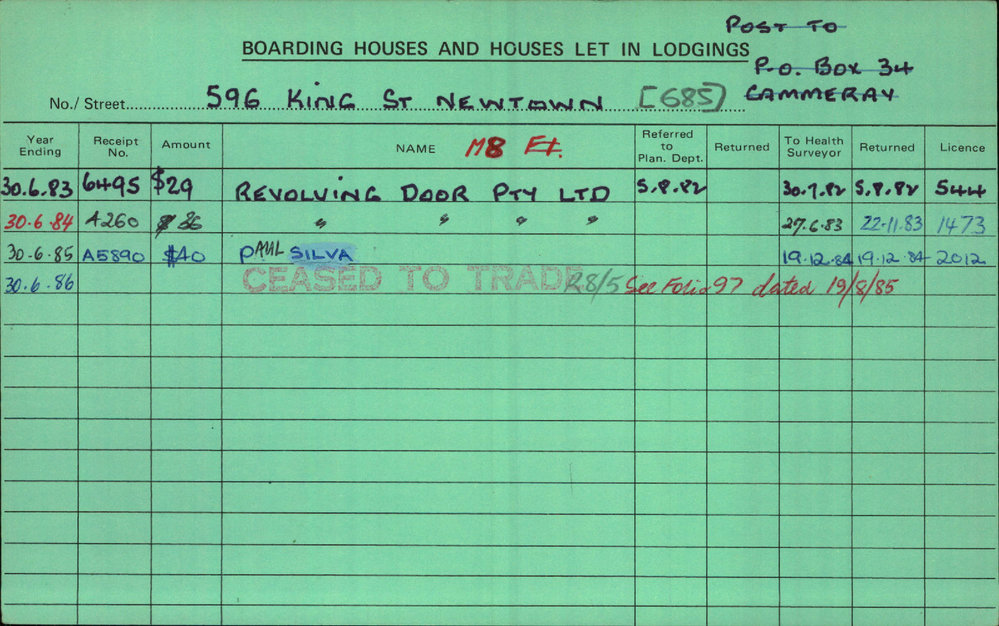 POST TO
BOARDING HOUSES AND HOUSES LET IN LODGINGS
P.O. BOX 34
No./ Street 596 KING ST NEWTOWN [685] CAMMERAY
Year Ending Receipt No. Amount NAME M8 Referred to Plan. Dept. Returned To Health Surveyor Returned Licence
30.6.83 6495 $29 REVOLVING DOOR PTY LTD 5.8.82 30.7.82 5.8.82 544
30.6.84 A260 $ 36 " " " " 27.6.83 22.11.83 1473
30.6.85 A5890 $40 PAUL SILVA 19.12.84 19.12.84 2012
30.6.86 CEASED TO TRADE 28/5 See Folio 97 dated 19/8/85